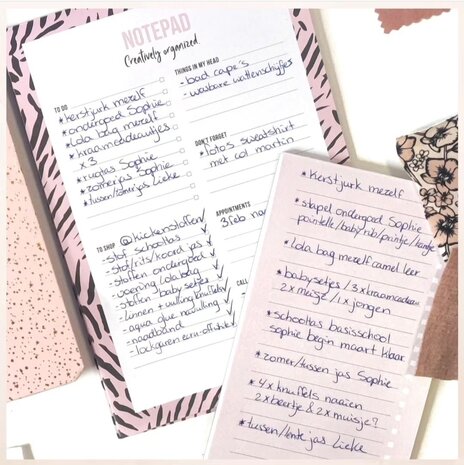 NOTEPAD
Creatively organized.
TO DO
* kerstjurk mezelf
* ondergoed Sophie
* lola bag mezelf
* kraamcadeautjes
x 3
* rugtas Sophie
* zomerjas Sophie
* tussen/zomerjas Lieke
THINGS IN MY HEAD
- bad cape's
- wasbare wattenschijfjes
DON'T FORGET
- lotos sweatshirt
met col martin
APPOINTMENTS
3 feb na
CALL
TO SHOP
@kickenstoffen
- stof schooltas
- stof/rits/koord jas
- stoffen ondergoed
- voering lola bag
- stoffen babysetjes
- linnen + vulling knuffels
- aqua glue navulling
- naadband
- lockgaren ecru-off-white
* kerstjurk mezelf
* stapel ondergoed Sophie
pointelle/baby rib/printje/kantje
* lola bag mezelf camel leer
* babysetjes / 3x kraamcadeau
2x meisje / 1x jongen
* schooltas basisschool
Sophie begin maart klaar
* zomer/tussen jas Sophie
* 4x knuffels naaien
2x beertje & 2x muisje?
* tussen/lente jas Lieke